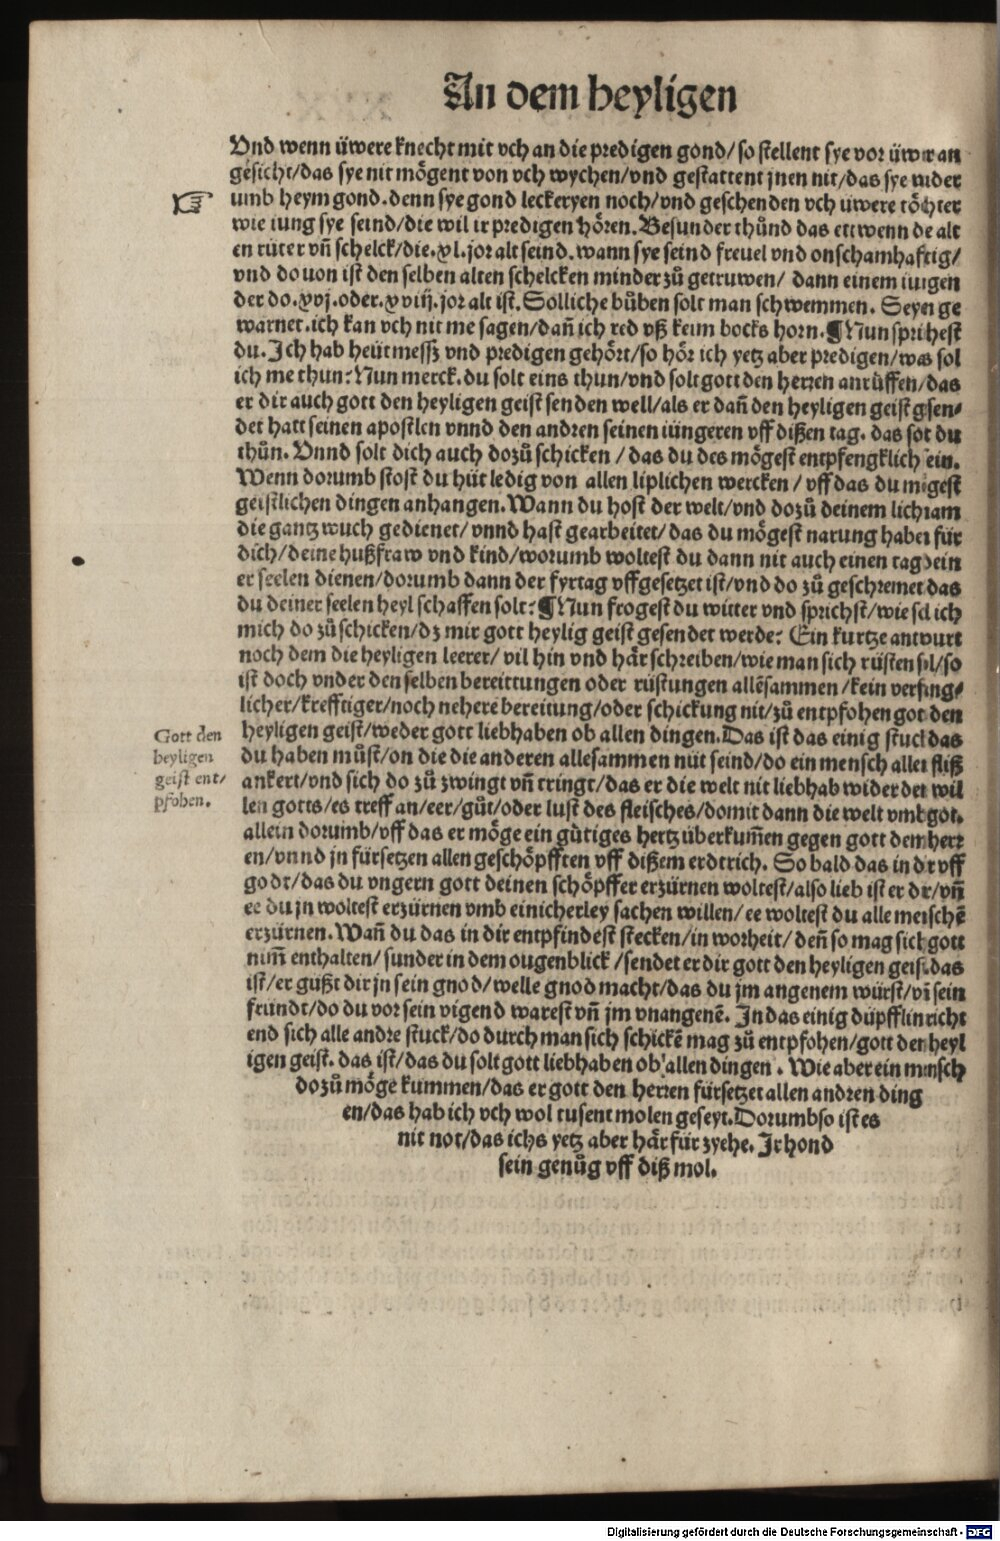 An dem heyligen
Vnd wenn üwere knecht mit vch an die predigen gond/so stellent sye vor üwer an
gesicht/das sye nit mögent von vch wychen/vnd gestattent jnen nit/das sye wider
umb heym gond.denn sye gond leckeryen noch/vnd geschenden vch üwere töchter
wie iung sye seind/die wil ir predigen hören.Besunder thůnd das ettwenn de alt
en rüter vñ schelck/die.xl.jor alt seind.wann sye seind freuel vnd onschamhaftig/
vnd do von ist den selben alten schelcken minder zů getruwen/ dann einem iungen
der do.xvj.oder.xviij.jor alt ist.Solliche bůben solt man schwemmen. Seyn ge
warnet.ich kan vch nit me sagen/dañ ich red vß keim bocks horn.¶Nun sprihest
du.Ich hab heüt messz vnd predigen gehört/so hör ich yetz aber predigen/was sol
ich me thun:Nun merck.du solt eins thun/vnd solt gott den herren anrůffen/das
er dir auch gott den heyligen geist senden well/als er dañ den heyligen geist gsen-
det hatt seinen apostlen vnnd den andren seinen iüngeren vff dißen tag. das sot du
thůn. Vnnd solt dich auch dozů schicken / das du des mögest entpfengklich sein.
Wenn dorumb stost du hüt ledig von allen liplichen wercken / vff das du mögest
geistlichen dingen anhangen.Wann du host der welt/vnd dozů deinem lichnam
die gantz wuch gedienet/vnnd hast gearbeitet/das du mögest narung haben für
dich/deine hußfraw vnd kind/worumb woltest du dann nit auch einen tag dein
er seelen dienen/dorumb dann der fyrtag vffgesetzet ist/vnd do zů geschremet das
du deiner seelen heyl schaffen solt:¶Nun frogest du witter vnd sprichst/wie sol ich
mich do zů schicken/dz mir gott heylig geist gesendet werde: Ein kurtze antwurt
noch dem die heyligen leerer/ vil hin vnd här schreiben/wie man sich rüsten sol/so
ist doch vnder den selben bereittungen oder rüstungen allesammen/kein verfeng-
licher/krefftiger/noch nehere bereitung/oder schickung nit/zů entpfohen got den
heyligen geist/weder gott liebhaben ob allen dingen.Das ist das einig stuck das
du haben můst/on die die anderen allesammen nüt seind/do ein mensch allen fliß
ankert/vnd sich do zů zwingt vñ tringt/das er die welt nit liebhab wider den wil
len gotts/es treff an/eer/gůt/oder lust des fleisches/domit dann die welt vmbgot.
allein dorumb/vff das er möge ein gütiges hertz überkumen gegen gott dem herr
en/vnnd jn fürsetzen allen geschöpfften vff dißem erdtrich. So bald das in dir vff
godt/das du vngern gott deinen schöpffer erzürnen woltest/also lieb ist er dir/vñ
ee du jn woltest erzürnen vmb einicherley sachen willen/ee woltest du alle menschē
erzürnen.Wañ du das in dir entpfindest stecken/in worheit/deñ so mag sich gott
nimm enthalten/sunder in dem ougenblick/sendet er dir gott den heyligen geist.das
ist/er güßt dir jn sein gnod/welle gnod macht/das du jm angenem würst/vñ sein
fründt/do du vor sein vigend warest vñ jm vnangenē. In das einig düpfflin richt
end sich alle andre stuck/do durch man sich schickē mag zů entpfohen/gott den heyl
igen geist. das ist/das du solt gott liebhaben ob allen dingen. Wie aber ein mensch
dozů möge kummen/das er gott den herren fürsetzet allen andren ding
en/das hab ich vch wol tusent molen geseyt.Dorumb so ist es
nit not/das ichs yetz aber här für zyehe.Ir hond
sein genůg vff diß mol.
Gott den
heyligen
geist ent/
pfohen.
Digitalisierung gefördert durch die Deutsche Forschungsgemeinschaft - DFG